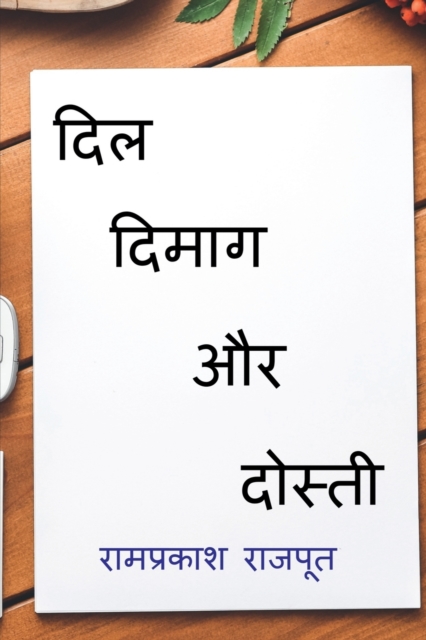 दिल
दिमाग
और
दोस्ती
रामप्रकाश राजपूत